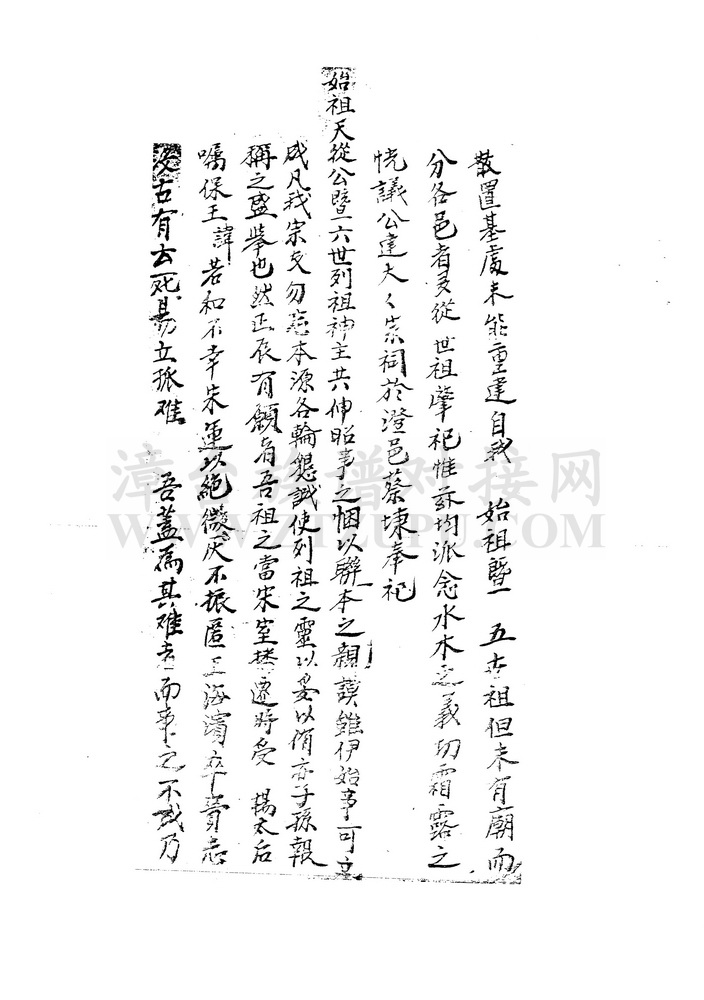 散置基處未能重建自我 始祖暨 五世祖但未有廟而
分各邑者多從 世祖肇祀惟 均派念水木之義切霜露之
恍議公建大〻宗祠於澄邑蔡埭奉祀
始祖天從公暨一六世列祖神主共伸昭事之悃以聯本之親謨雖伊始事可立
成凡我宗支勿忘本源各輪懇誠使列祖之靈以妥以侑亦子孫報
稱之盛舉也然正辰有願者吾祖之當宋室 遷時受 楊太后
囑保王 諱 若和不幸宋運以絕微 不振匿王海濱卒賫志
沒古有云死易立孤难 吾蓋為其难者而事之不成乃
漳台族谱对接网
WWW.ZTZUPU.COM